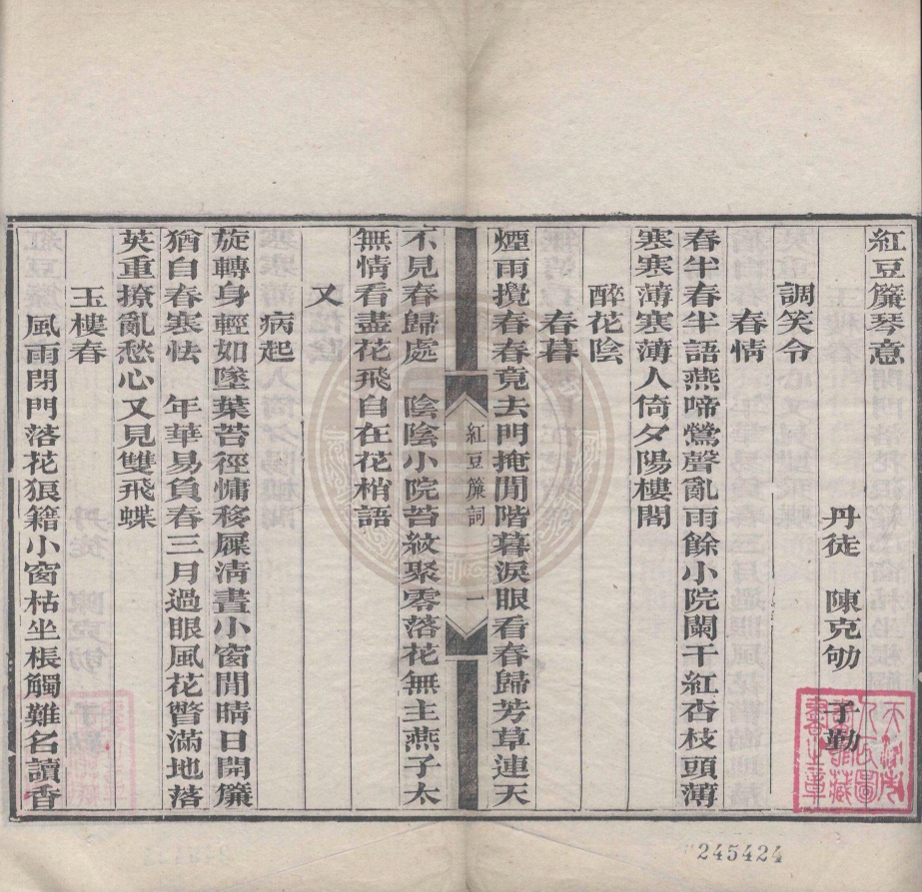 紅豆簾琴意
丹徒　陳克劬　子勤
調笑令
春情
春半春半語燕啼鶯聲亂雨餘小院闌干紅杏枝頭薄
寒寒薄寒薄人倚夕陽樓閣
醉花陰
春暮
煙雨攪春春竟去門掩閒階暮淚眼看春歸芳草連天
紅豆簾詞
一
不見春歸處　陰陰小院苔紋聚零落花無主燕子太
無情看盡花飛自在花梢語
又
病起
旋轉身輕如墜葉苔徑慵移屧清晝小窗閒晴日開簾
猶自春寒怯　年華易負春三月過眼風花瞥滿地落
英重撩亂愁心又見雙飛蝶
玉樓春
風雨閉門落花狼籍小窗枯坐棖觸難名讀香
天津市
人民圖
書館藏
書之章
245424